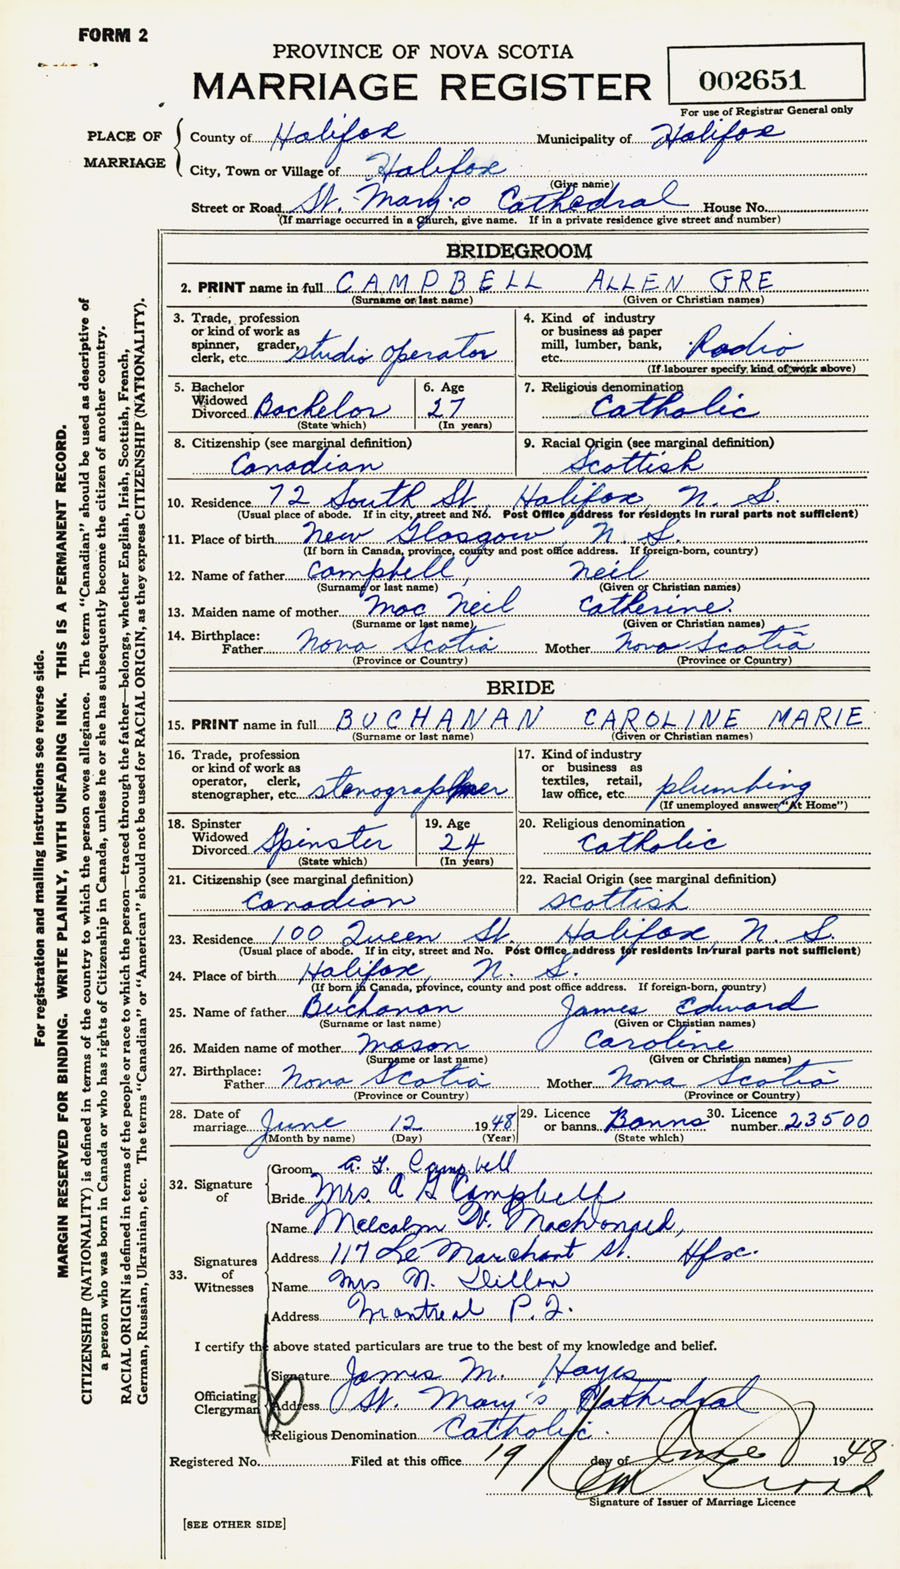 FORM 2
PROVINCE OF NOVA SCOTIA
MARRIAGE REGISTER
002651
For use of Registrar General only
PLACE OF MARRIAGE
County of Halifax Municipality of Halifax
City, Town or Village of Halifax
(Give name)
Street or Road St. Mary's Cathedral House No.
(If marriage occurred in a Church, give name. If in a private residence give street and number)
BRIDEGROOM
2. PRINT name in full CAMPBELL ALLEN GRE
(Surname or last name) (Given or Christian names)
3. Trade, profession
or kind of work as
spinner, grader,
clerk, etc. studio operator
4. Kind of industry
or business as paper
mill, lumber, bank,
etc. Radio
(If labourer specify kind of work above)
5. Bachelor
Widowed
Divorced Bachelor
(State which)
6. Age
27
(In years)
7. Religious denomination
Catholic
8. Citizenship (see marginal definition)
Canadian
9. Racial Origin (see marginal definition)
Scottish
10. Residence 72 South St. Halifax, N. S.
(Usual place of abode. If in city, street and No. Post Office address for residents in rural parts not sufficient)
11. Place of birth New Glasgow, N. S.
(If born in Canada, province, county and post office address. If foreign-born, country)
12. Name of father Campbell, Neil
(Surname or last name) (Given or Christian names)
13. Maiden name of mother Mac Neil Catherine
(Surname or last name) (Given or Christian names)
14. Birthplace:
Father Nova Scotia Mother Nova Scotia
(Province or Country) (Province or Country)
BRIDE
15. PRINT name in full BUCHANAN CAROLINE MARIE
(Surname or last name) (Given or Christian names)
16. Trade, profession
or kind of work as
operator, clerk,
stenographer, etc. stenographer
17. Kind of industry
or business as
textiles, retail,
law office, etc. plumbing
(If unemployed answer "At Home")
18. Spinster
Widowed
Divorced Spinster
(State which)
19. Age
24
(In years)
20. Religious denomination
Catholic
21. Citizenship (see marginal definition)
Canadian
22. Racial Origin (see marginal definition)
Scottish
23. Residence 100 Queen St. Halifax N. S.
(Usual place of abode. If in city, street and No. Post Office address for residents in rural parts not sufficient)
24. Place of birth Halifax, N. S.
(If born in Canada, province, county and post office address. If foreign-born, country)
25. Name of father Buchanan James Edward
(Surname or last name) (Given or Christian names)
26. Maiden name of mother Mason Caroline
(Surname or last name) (Given or Christian names)
27. Birthplace:
Father Nova Scotia Mother Nova Scotia
(Province or Country) (Province or Country)
28. Date of
marriage June 12 1948
(Month by name) (Day) (Year)
29. Licence
or banns Banns
(State which)
30. Licence
number 23500
32. Signature of
Groom A. G. Campbell
Bride Mrs. A G Campbell
33. Signatures of Witnesses
Name Malcolm MacDonald,
Address 117 Le Marchant St. Hfx.
Name Mrs N. Dillon
Address Montreal P.Q.
I certify the above stated particulars are true to the best of my knowledge and belief.
Officiating Clergyman
Signature James M. Hayes
Address St. Mary's Cathedral
Religious Denomination Catholic.
Registered No. Filed at this office 19 day of June 1948
Signature of Issuer of Marriage Licence
[SEE OTHER SIDE]
For registration and mailing instructions see reverse side.
MARGIN RESERVED FOR BINDING. WRITE PLAINLY, WITH UNFADING INK. THIS IS A PERMANENT RECORD.
CITIZENSHIP (NATIONALITY) is defined in terms of the country to which the person owes allegiance. The term "Canadian" should be used as descriptive of
a person who was born in Canada or who has rights of Citizenship in Canada, unless he or she has subsequently become the citizen of another country.
RACIAL ORIGIN is defined in terms of the people or race to which the person—traced through the father—belongs, whether English, Irish, Scottish, French,
German, Russian, Ukrainian, etc. The terms "Canadian" or "American" should not be used for RACIAL ORIGIN, as they express CITIZENSHIP (NATIONALITY).